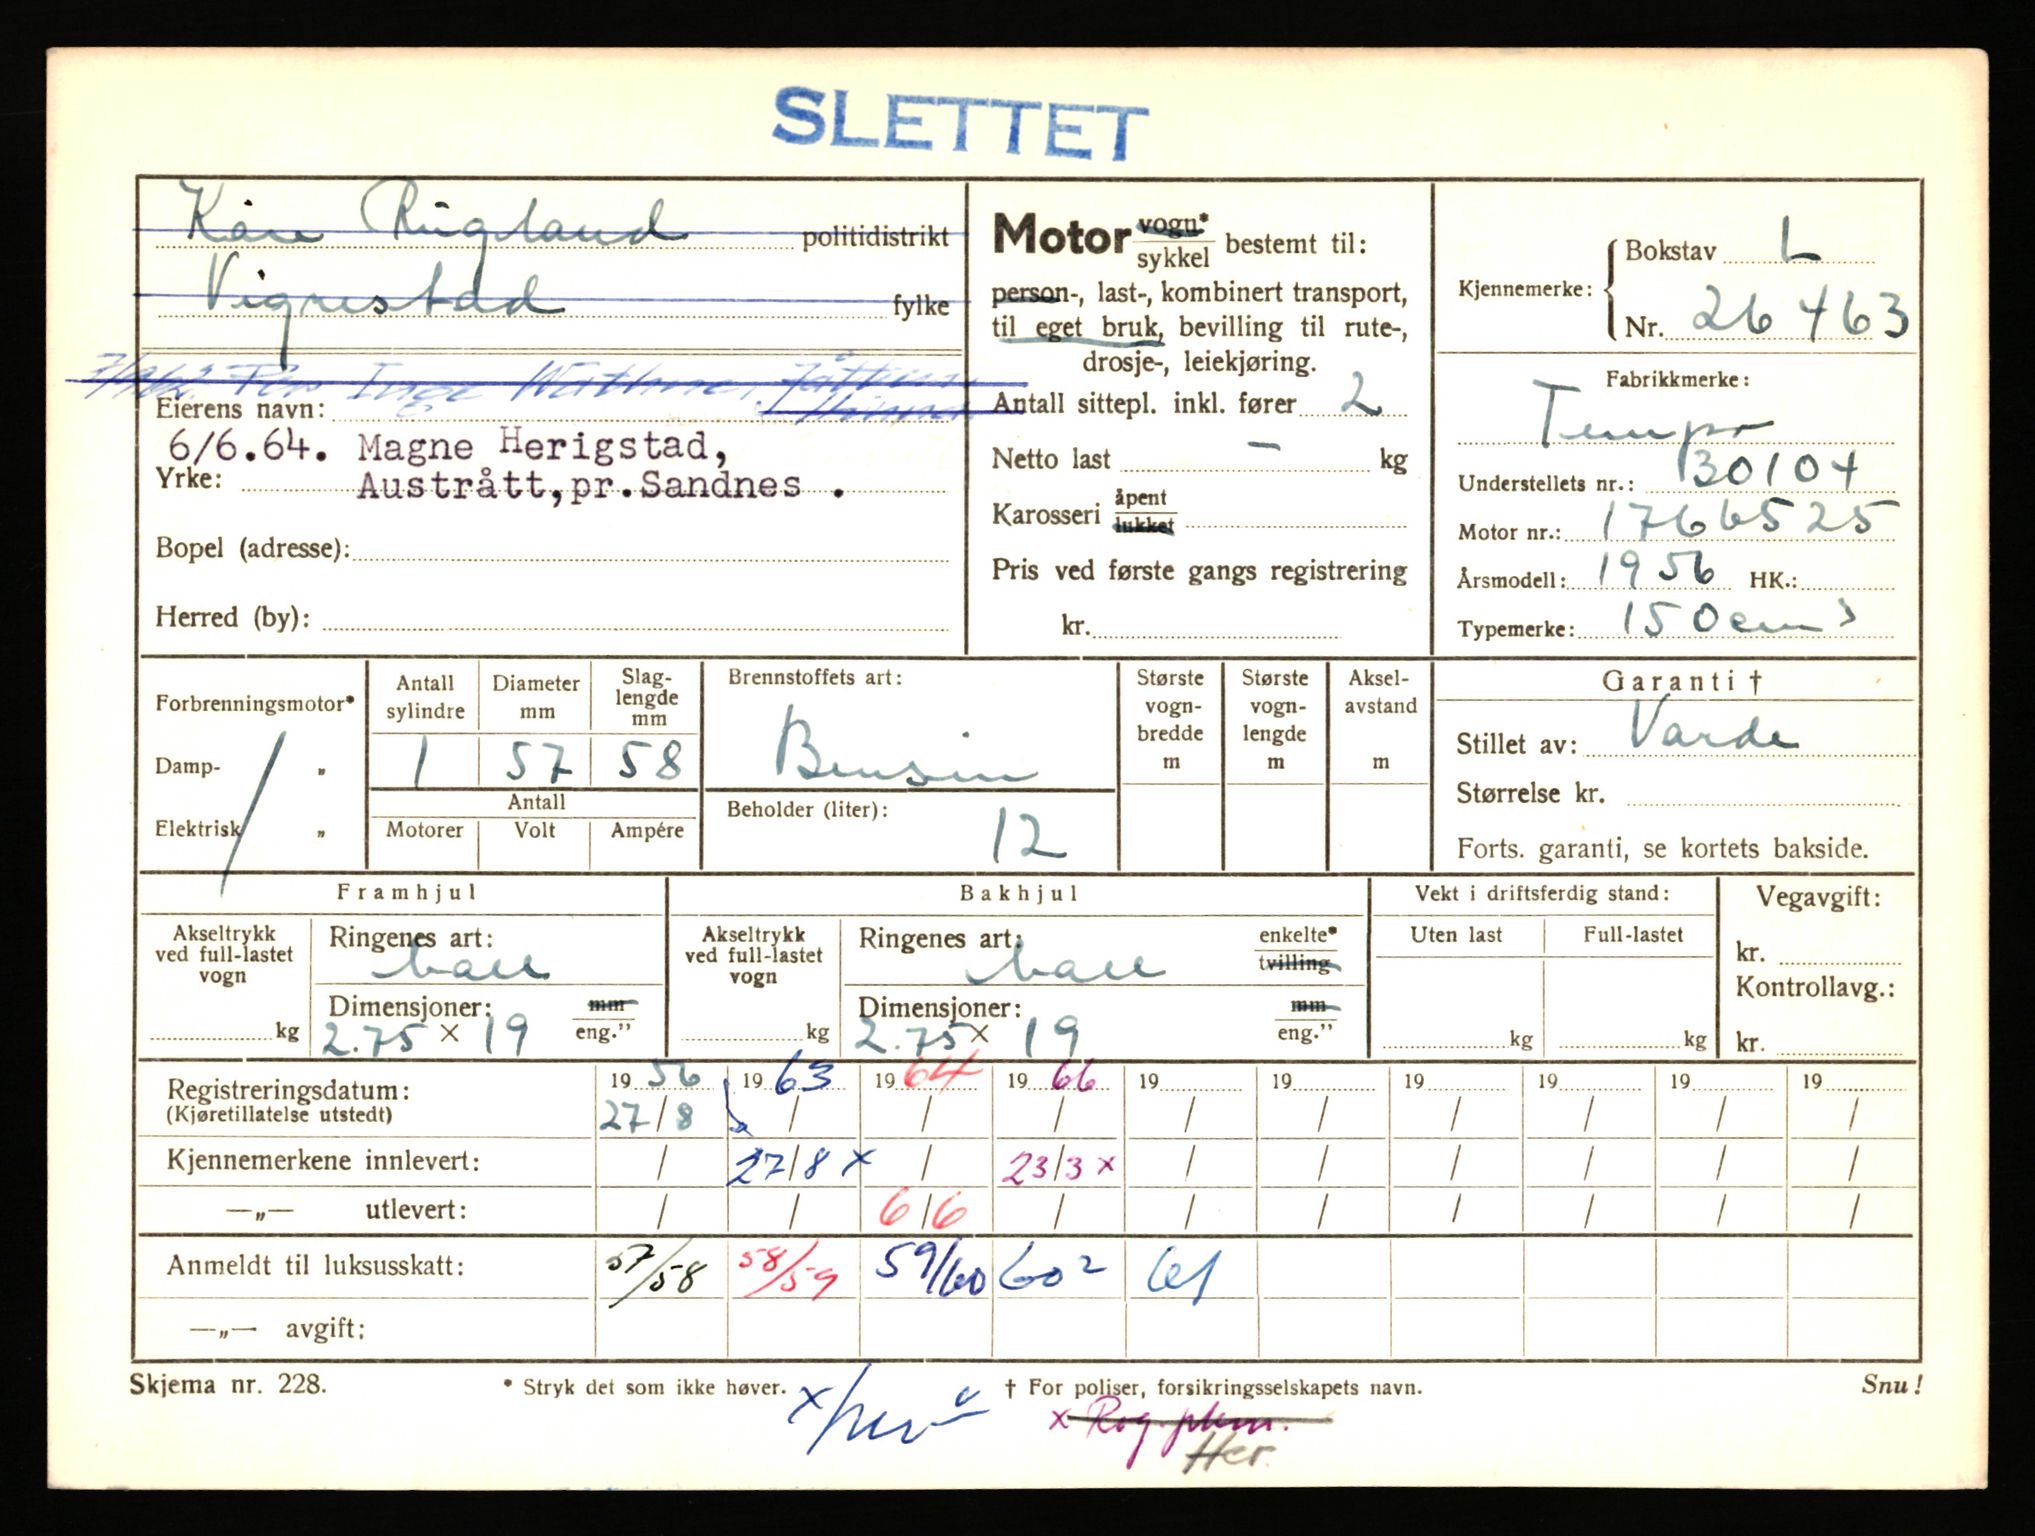 SLETTET
Kåre Rugland politidistrikt
Vigrestad fylke
Per Inge Wathne, Jåttun
Eierens navn: Hinna
6/6.64. Magne Herigstad,
Yrke: Austrått, pr. Sandnes .
Bopel (adresse):
Herred (by):
Motor vogn* sykkel bestemt til:
person-, last-, kombinert transport,
til eget bruk, bevilling til rute-,
drosje-, leiekjøring.
Antall sittepl. inkl. fører 2
Netto last – kg
Karosseri åpent lukket
Pris ved første gangs registrering
kr.
Kjennemerke: Bokstav L
Nr. 26463
Fabrikkmerke:
Tempo
Understellets nr.: 130104
Motor nr.: 1766525
Årsmodell: 1956 HK.:
Typemerke: 150 cm3
Forbrenningsmotor*
Damp- „
Elektrisk „
Antall sylindre Diameter mm Slag-lengde mm
1 57 58
Antall
Motorer Volt Ampére
Brennstoffets art:
Bensin
Beholder (liter):
12
Største vogn-bredde m
Største vogn-lengde m
Aksel-avstand m
Garanti †
Stillet av: Varde
Størrelse kr.
Forts. garanti, se kortets bakside.
Framhjul
Akseltrykk ved full-lastet vogn
kg
Ringenes art:
Dimensjoner: mm
2.75 x 19 eng."
Bakhjul
Akseltrykk ved full-lastet vogn
kg
Ringenes art: enkelte* tvilling
Dimensjoner: mm
2.75 x 19 eng."
Vekt i driftsferdig stand:
Uten last Full-lastet
kg kg
Vegavgift:
kr.
Kontrollavg.:
kr.
Registreringsdatum: 19 56 19 63 19 64 19 66 19 19 19 19 19 19
(Kjøretillatelse utstedt) 27/8 / / / / / / / / /
Kjennemerkene innlevert: / 27/8 x / 23/3 x / / / / / /
—„— utlevert: / / 6/6 / / / / / / /
Anmeldt til luksusskatt: 57/58 58/59 59/60 60² 61
—„— avgift:
Skjema nr. 228. * Stryk det som ikke høver. † For poliser, forsikringsselskapets navn. Snu!
x Rog.
Her.